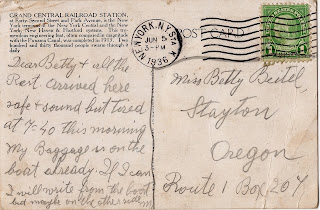 GRAND CENTRAL RAILROAD STATION,
at Forty-Second Street and Park Avenue, is the New
York terminal of the New York Central and the New
York, New Haven & Hartford systems. This tre-
mendous engineering feat, often compared in magnitude
with the Panama Canal, was completed in 1913. Two
hundred and thirty thousand people swarm through it
daily
POST CARD
NEW YORK, N.Y. STA
JUN 5
3-PM
1936
1
Dear Betty & all the
Rest. Arrived here
safe & sound but tired
at 7-50 this morning
My Baggage is on the
boat already. If I can
I will write from the boat
but maybe on the other side
Miss Betty Beitel,
Stayton
Oregon
Route 1 Box 207